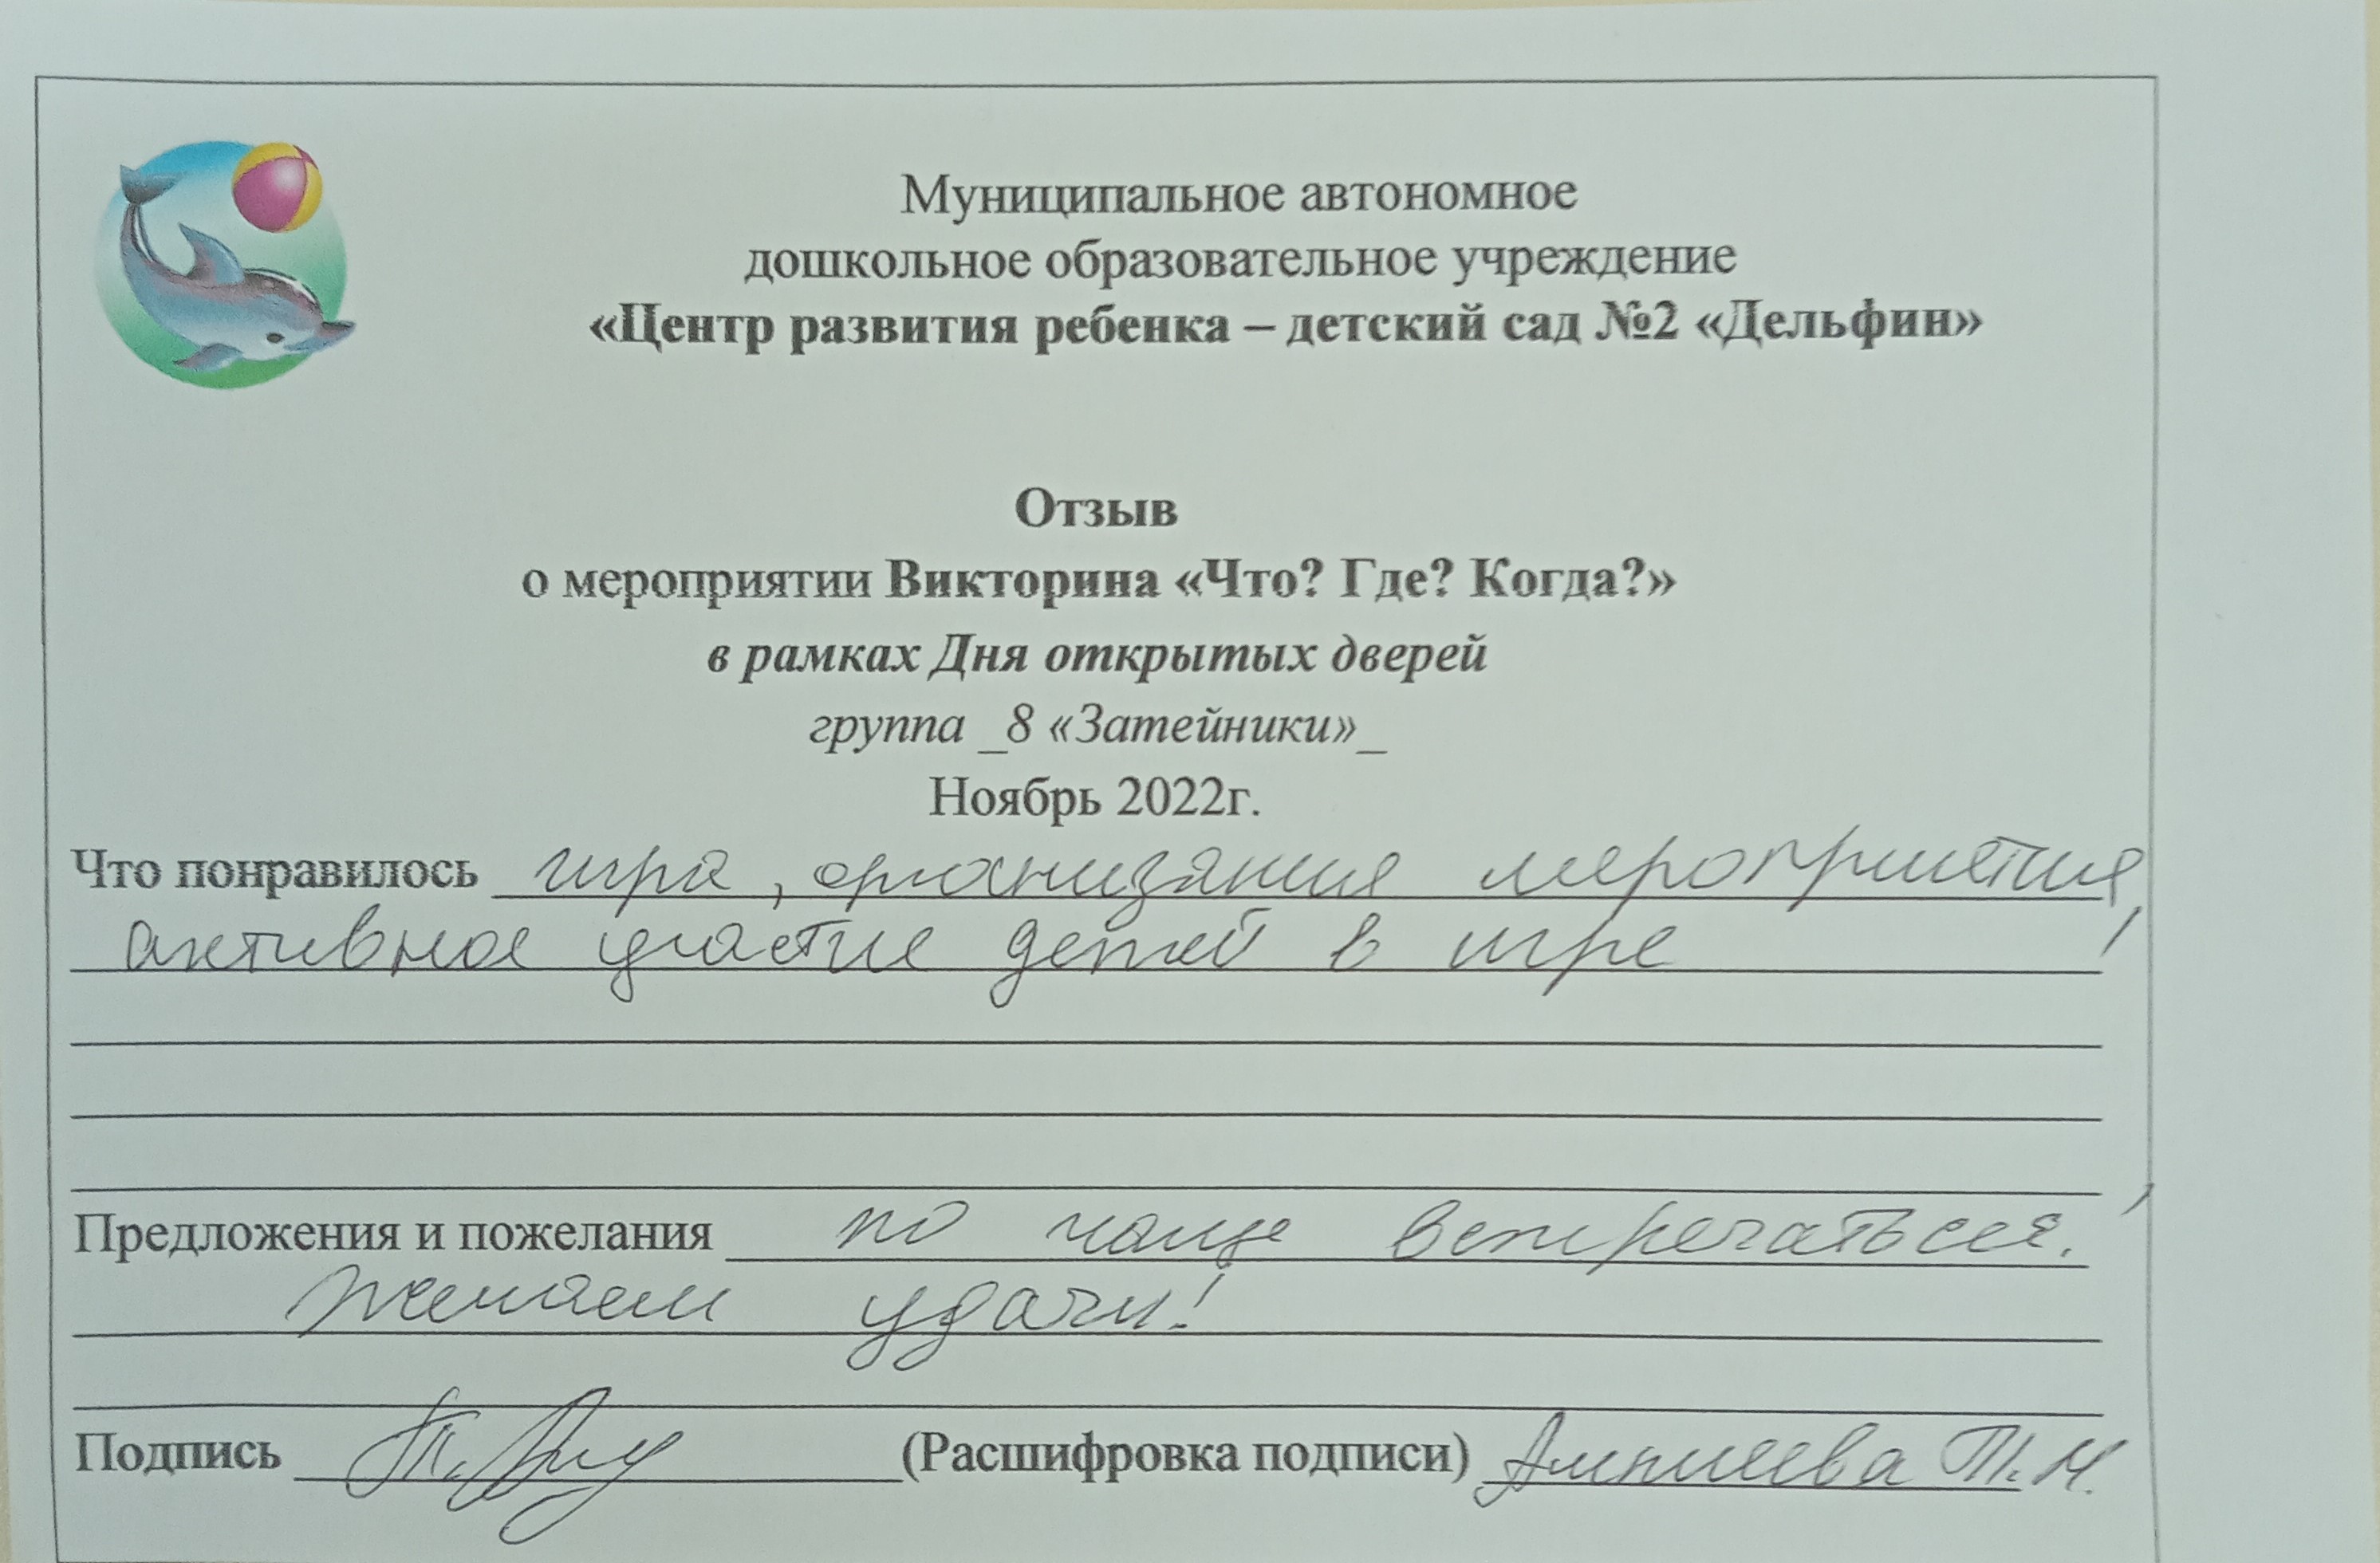 Муниципальное автономное
дошкольное образовательное учреждение
«Центр развития ребенка – детский сад №2 «Дельфин»
Отзыв
о мероприятии Викторина «Что? Где? Когда?»
в рамках Дня открытых дверей
группа _8 «Затейники»_
Ноябрь 2022г.
Что понравилось игра, организация мероприятия,
активное участие детей в игре
Предложения и пожелания по чаще встречаться.
Желаем удачи!
Подпись (Расшифровка подписи) Т. М.